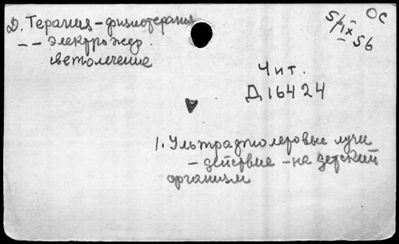 Д. Терапия - физиотерапия
-- электрожер.
светолечение
5/IX 56
ОС
Чит.
Д16424
1. Ультрадиолеровые лучи
- действие - на детский
организм